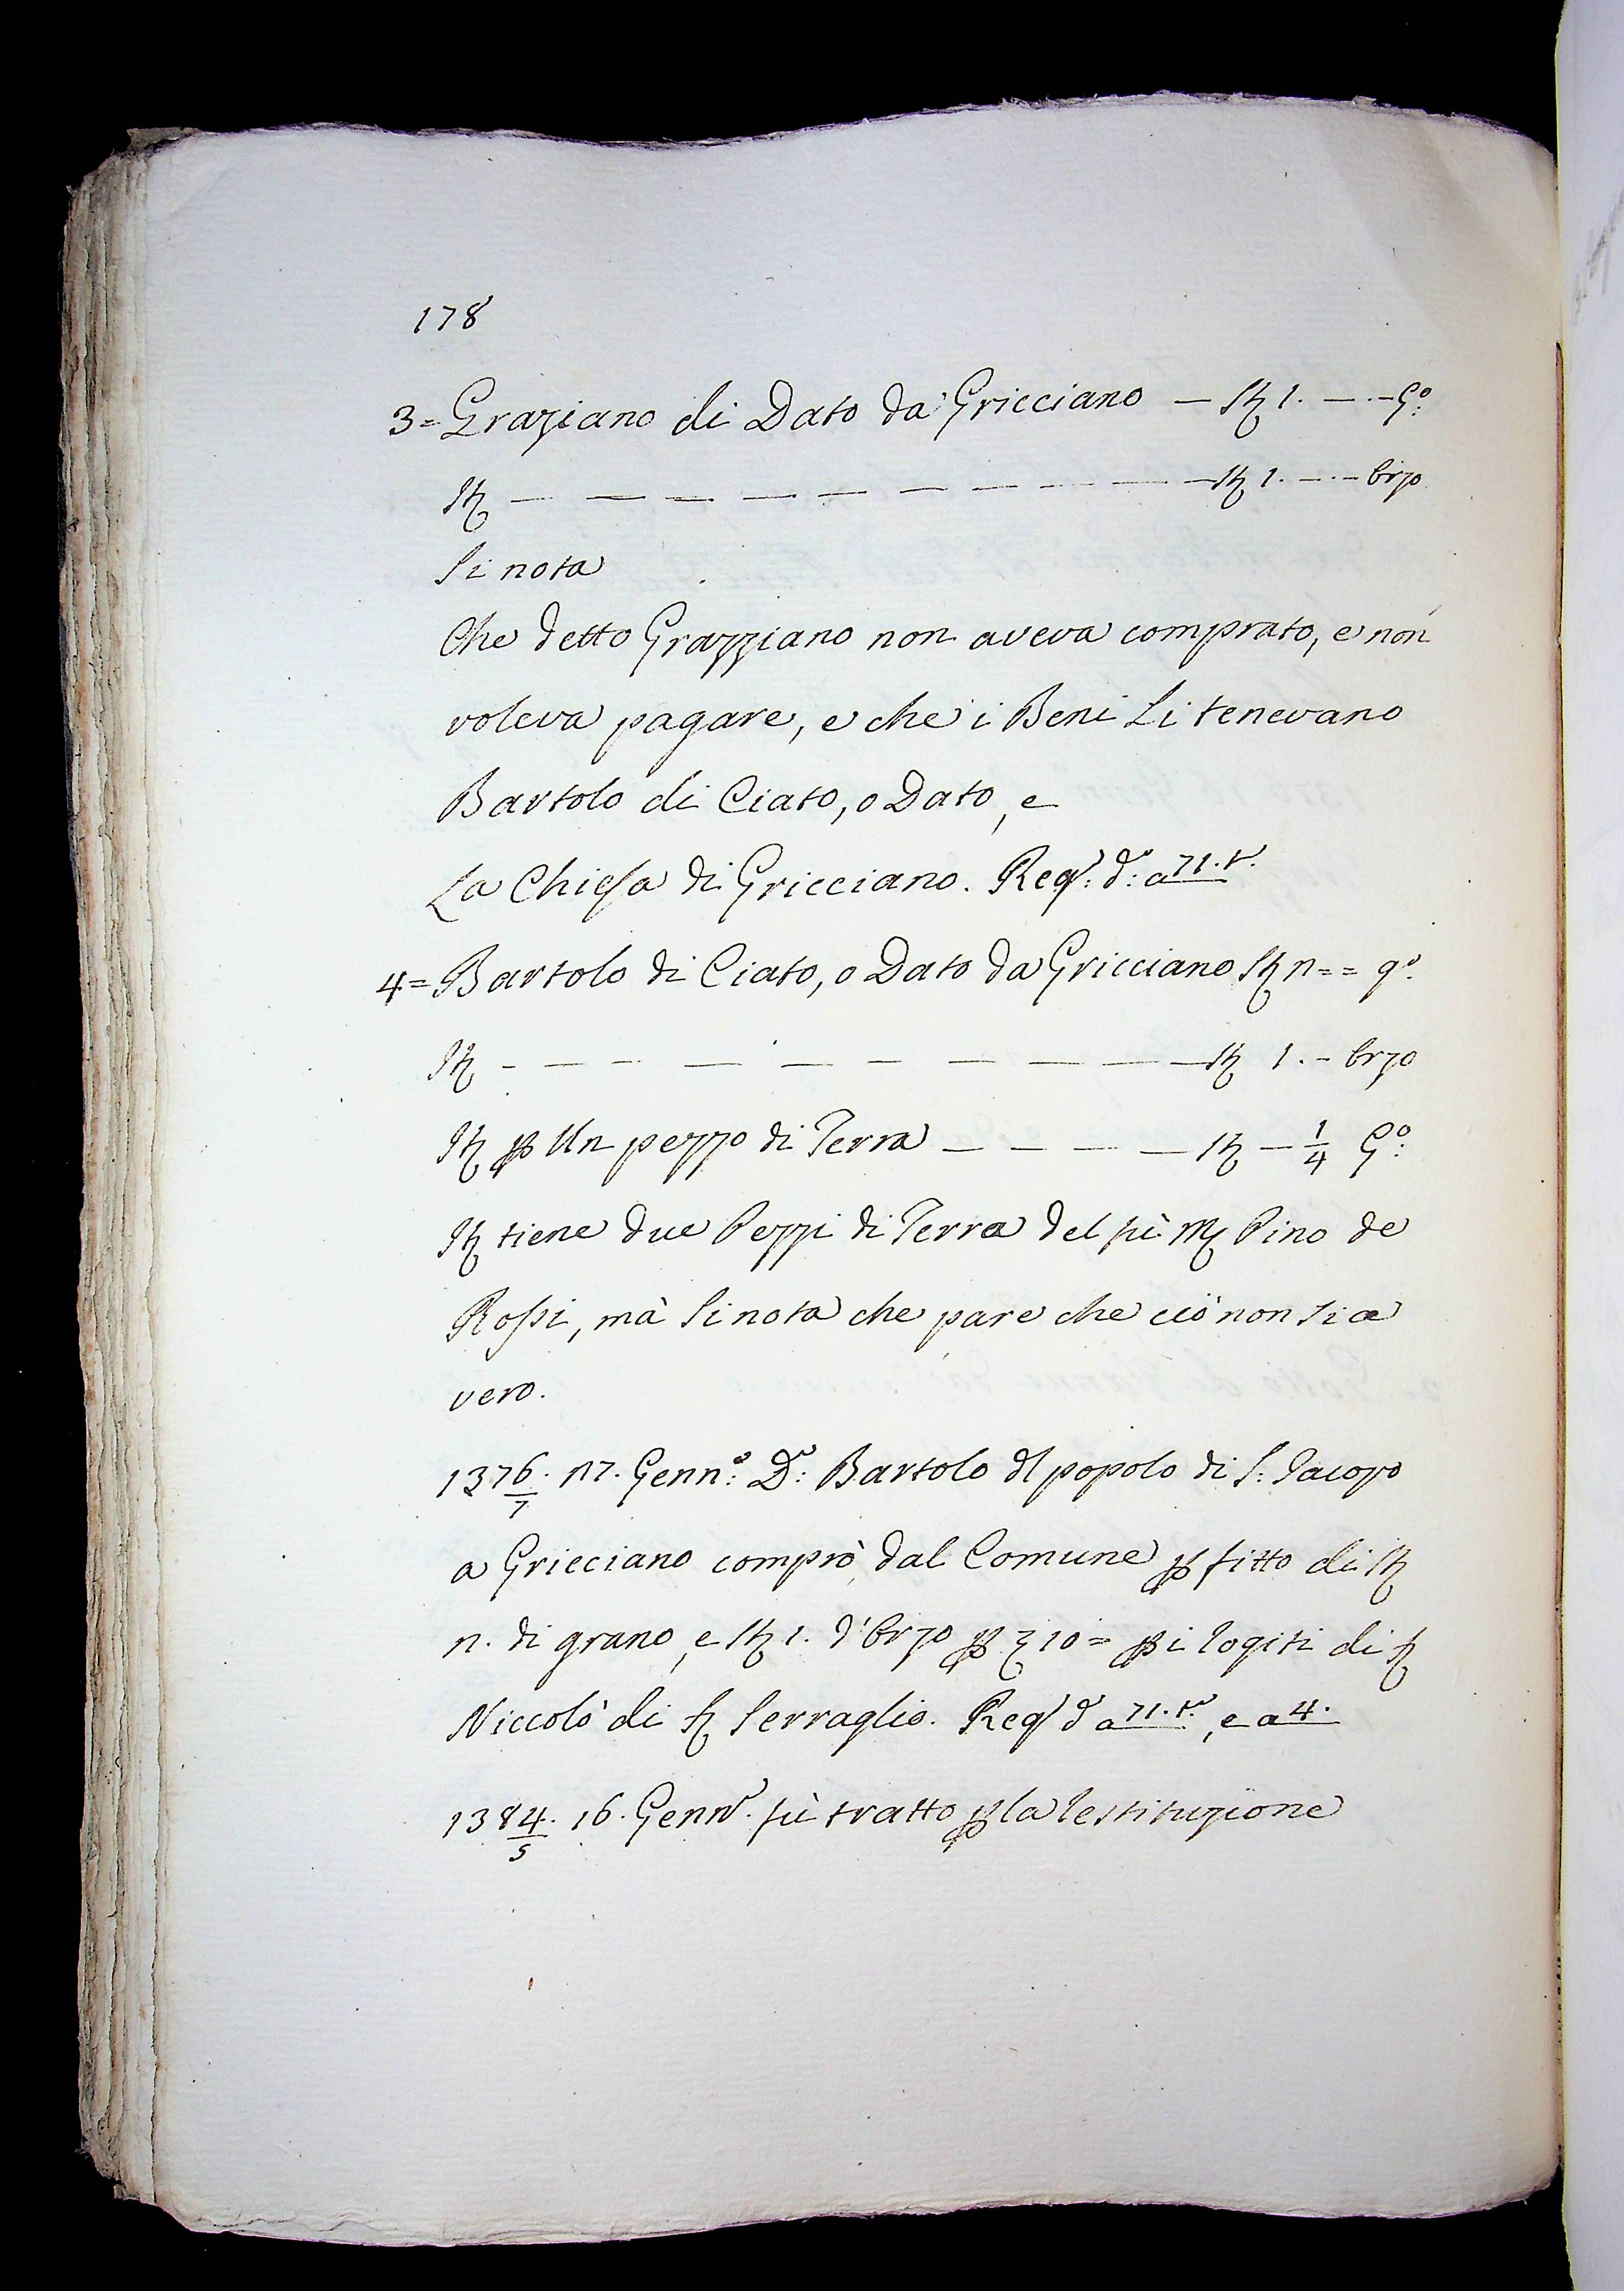 178
3= Graziano di Dato da Gricciano — St 1. — . — G:o
It — — — — — — — — — — St 1. — . — Orzo
Si nota
Che detto Grazziano non aveva comprato, e non
voleva pagare, e che i Beni Li tenevano
Bartolo di Ciato, o Dato, e
La Chiesa di Gricciano. Reg: d: a 71. t.
4= Bartolo di Ciato, o Dato da Gricciano St n = = g:o
It — — — — — — — — — St 1. — Orzo
It p Un pezzo di Terra — — — — St — 1/4 G:o
It tiene due Pezzi di Terra del fù M Pino de
Rossi, mà Si nota che pare che ciò non Sia
vero.
1376/7. 17. Genn:o D: Bartolo dl popolo di S: Jacopo
a Gricciano comprò dal Comune p fitto di St
n. di grano, e St 1. d'Orzo p 10 = p i logiti di S
Niccolò di S Serraglio. Reg d a 71. t., e a 4.
1384/5. 16. Genn. fù tratto p la restituzione